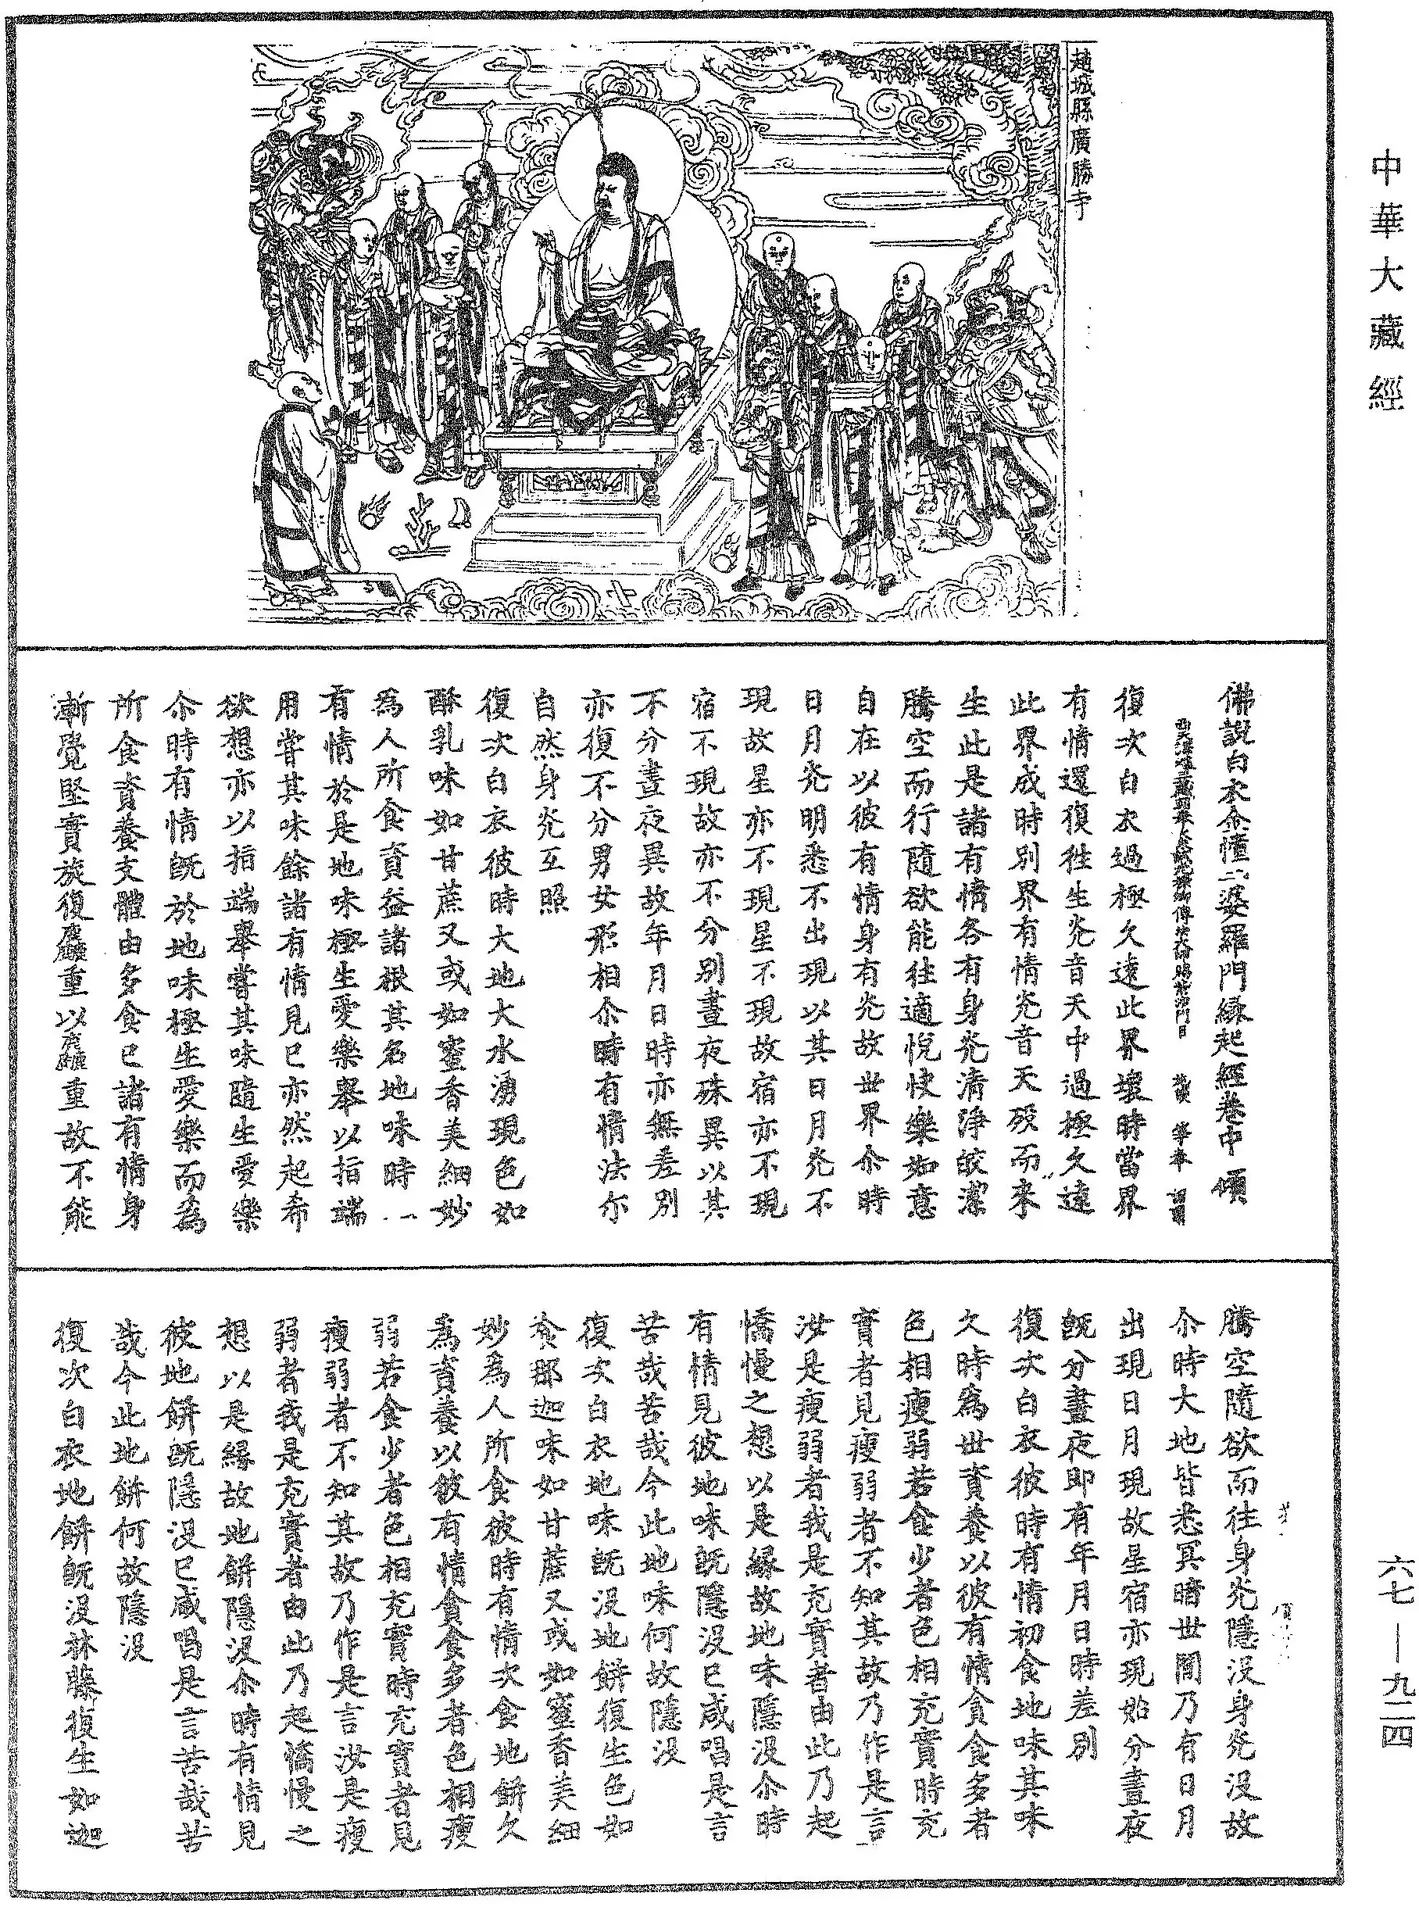 中華大藏經
趙城縣廣勝寺
佛說白衣金幢二婆羅門緣起經卷中 傾
詔譯
復次白衣過極久遠此界壞時當界
有情還復徃生光音天中過極久遠
此界成時別界有情光音天歿而來
生此是諸有情各有身光清淨皎潔
騰空而行隨欲能往適悅快樂如意
自在以彼有情身有光故世界尒時
日月光明悉不出現以其日月光不
現故星亦不現星不現故宿亦不現
宿不現故亦不分別晝夜殊異以其
不分晝夜異故年月日時亦無差別
亦復不分男女形相尒時有情法尒
自然身光互照
復次白衣彼時大地大水湧現色如
酥乳味如甘蔗又或如蜜香美細妙
為人所食資益諸根其名地味時一
有情於是地味極生愛樂舉以指端
用嘗其味餘諸有情見已亦然起希
欲想亦以指端舉嘗其味隨生愛樂
尒時有情既於地味極生愛樂而為
所食資養支體由多食已諸有情身
漸覺堅實旋復麤重以麤重故不能
騰空隨欲而往身光隱沒身光沒故
尒時大地皆悉冥暗世間乃有日月
出現日月現故星宿亦現始分晝夜
既分晝夜即有年月日時差別
復次白衣彼時有情初食地味其味
久時為世資養以彼有情貪食多者
色相瘦弱若食少者色相充實時充
實者見瘦弱者不知其故乃作是言
汝是瘦弱者我是充實者由此乃起
憍慢之想以是緣故地味隱沒尒時
有情見彼地味既隱沒已咸唱是言
苦哉苦哉今此地味何故隱沒
復次白衣地味既沒地餅復生色如
飡那迦味如甘蔗又或如蜜香美細
妙為人所食彼時有情次食地餅久
為資養以彼有情貪食多者色相瘦
弱若食少者色相充實時充實者見
瘦弱者不知其故乃作是言汝是瘦
弱者我是充實者由此乃起憍慢之
想以是緣故地餅隱沒尒時有情見
彼地餅既隱沒已咸唱是言苦哉苦
哉今此地餅何故隱沒
復次白衣地餅既沒林藤復生如迦
六七—九二四